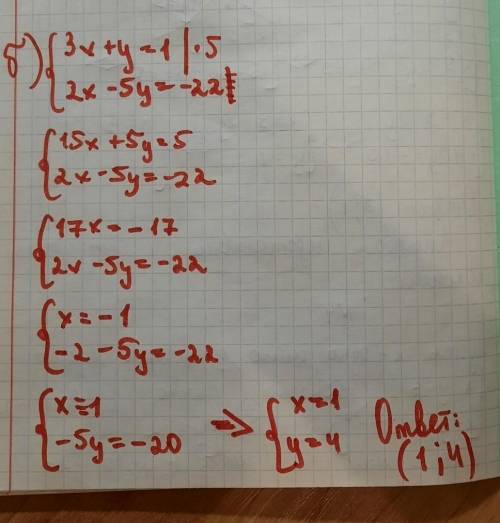 б) { 3x + y = 1 | · 5
2x - 5y = -22
{ 15x + 5y = 5
2x - 5y = -22
{ 17x = -17
2x - 5y = -22
{ x = -1
-2 - 5y = -22
{ x = 1
-5y = -20
=> { x = 1
y = 4
Ответ:
(1; 4)